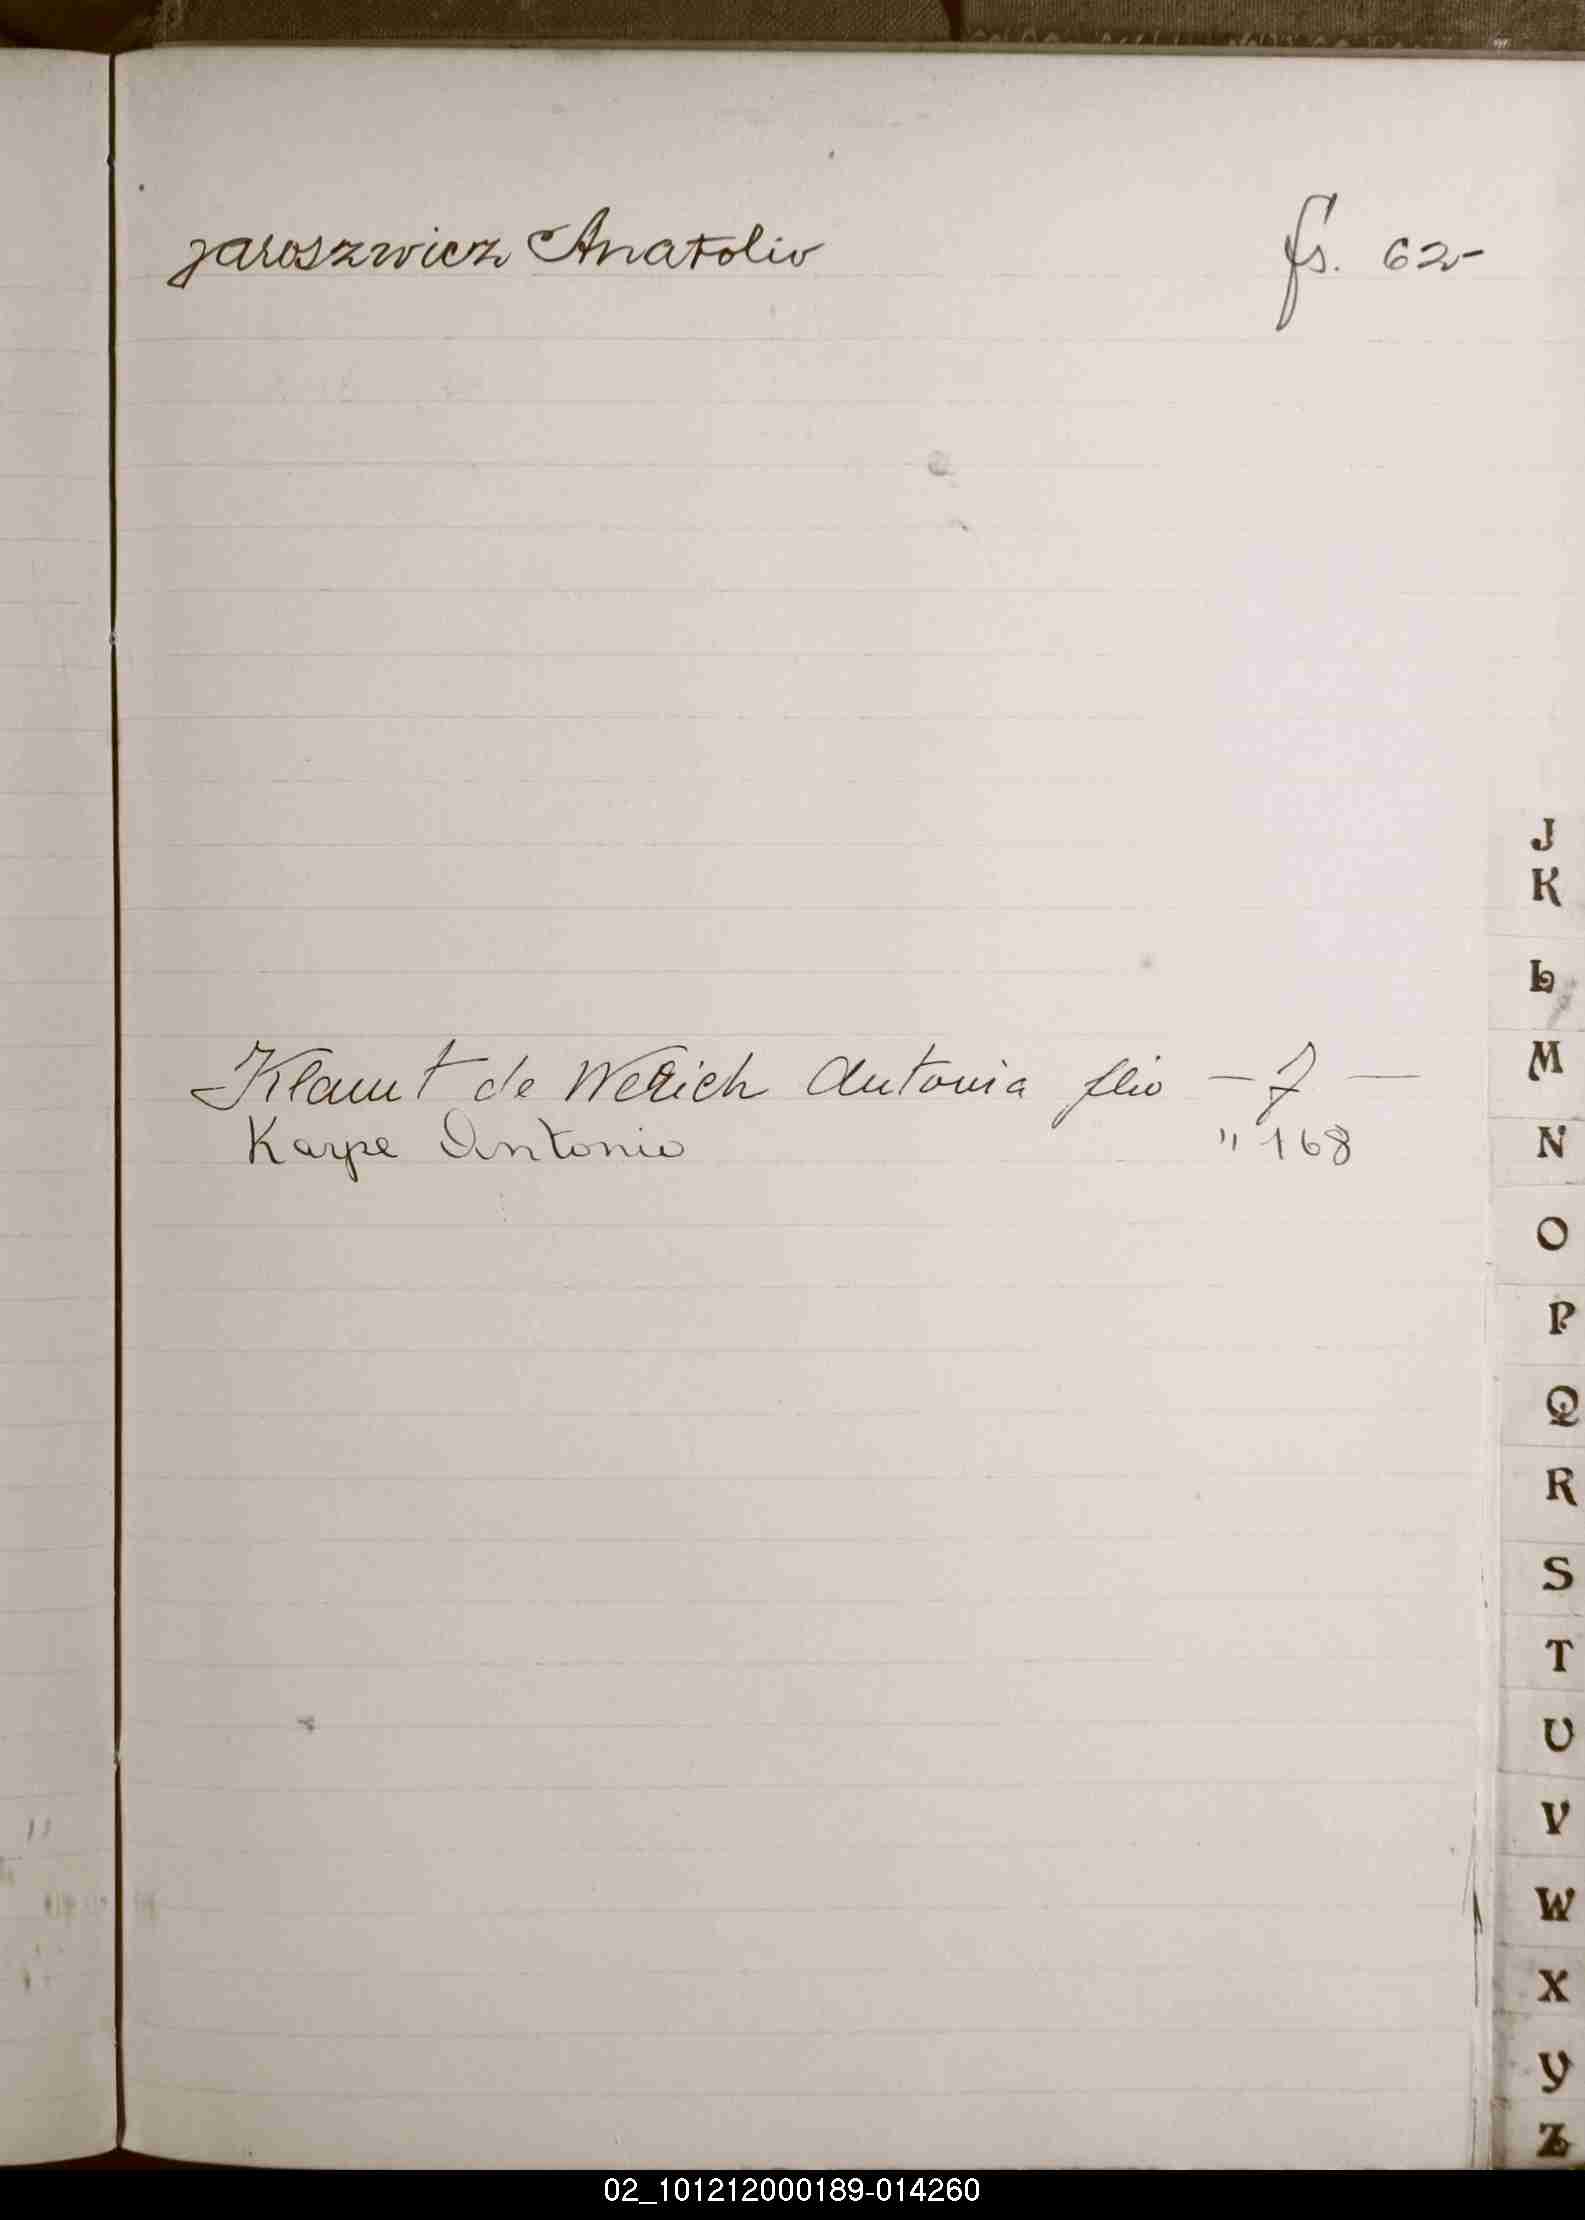 Jaroszwicz Anatolio fs. 62-
Klamt de Werich Antonia flio - 7 -
Karpe Antonio " 168
J
K
L
M
N
O
P
Q
R
S
T
U
V
W
X
Y
Z
02_101212000189-014260